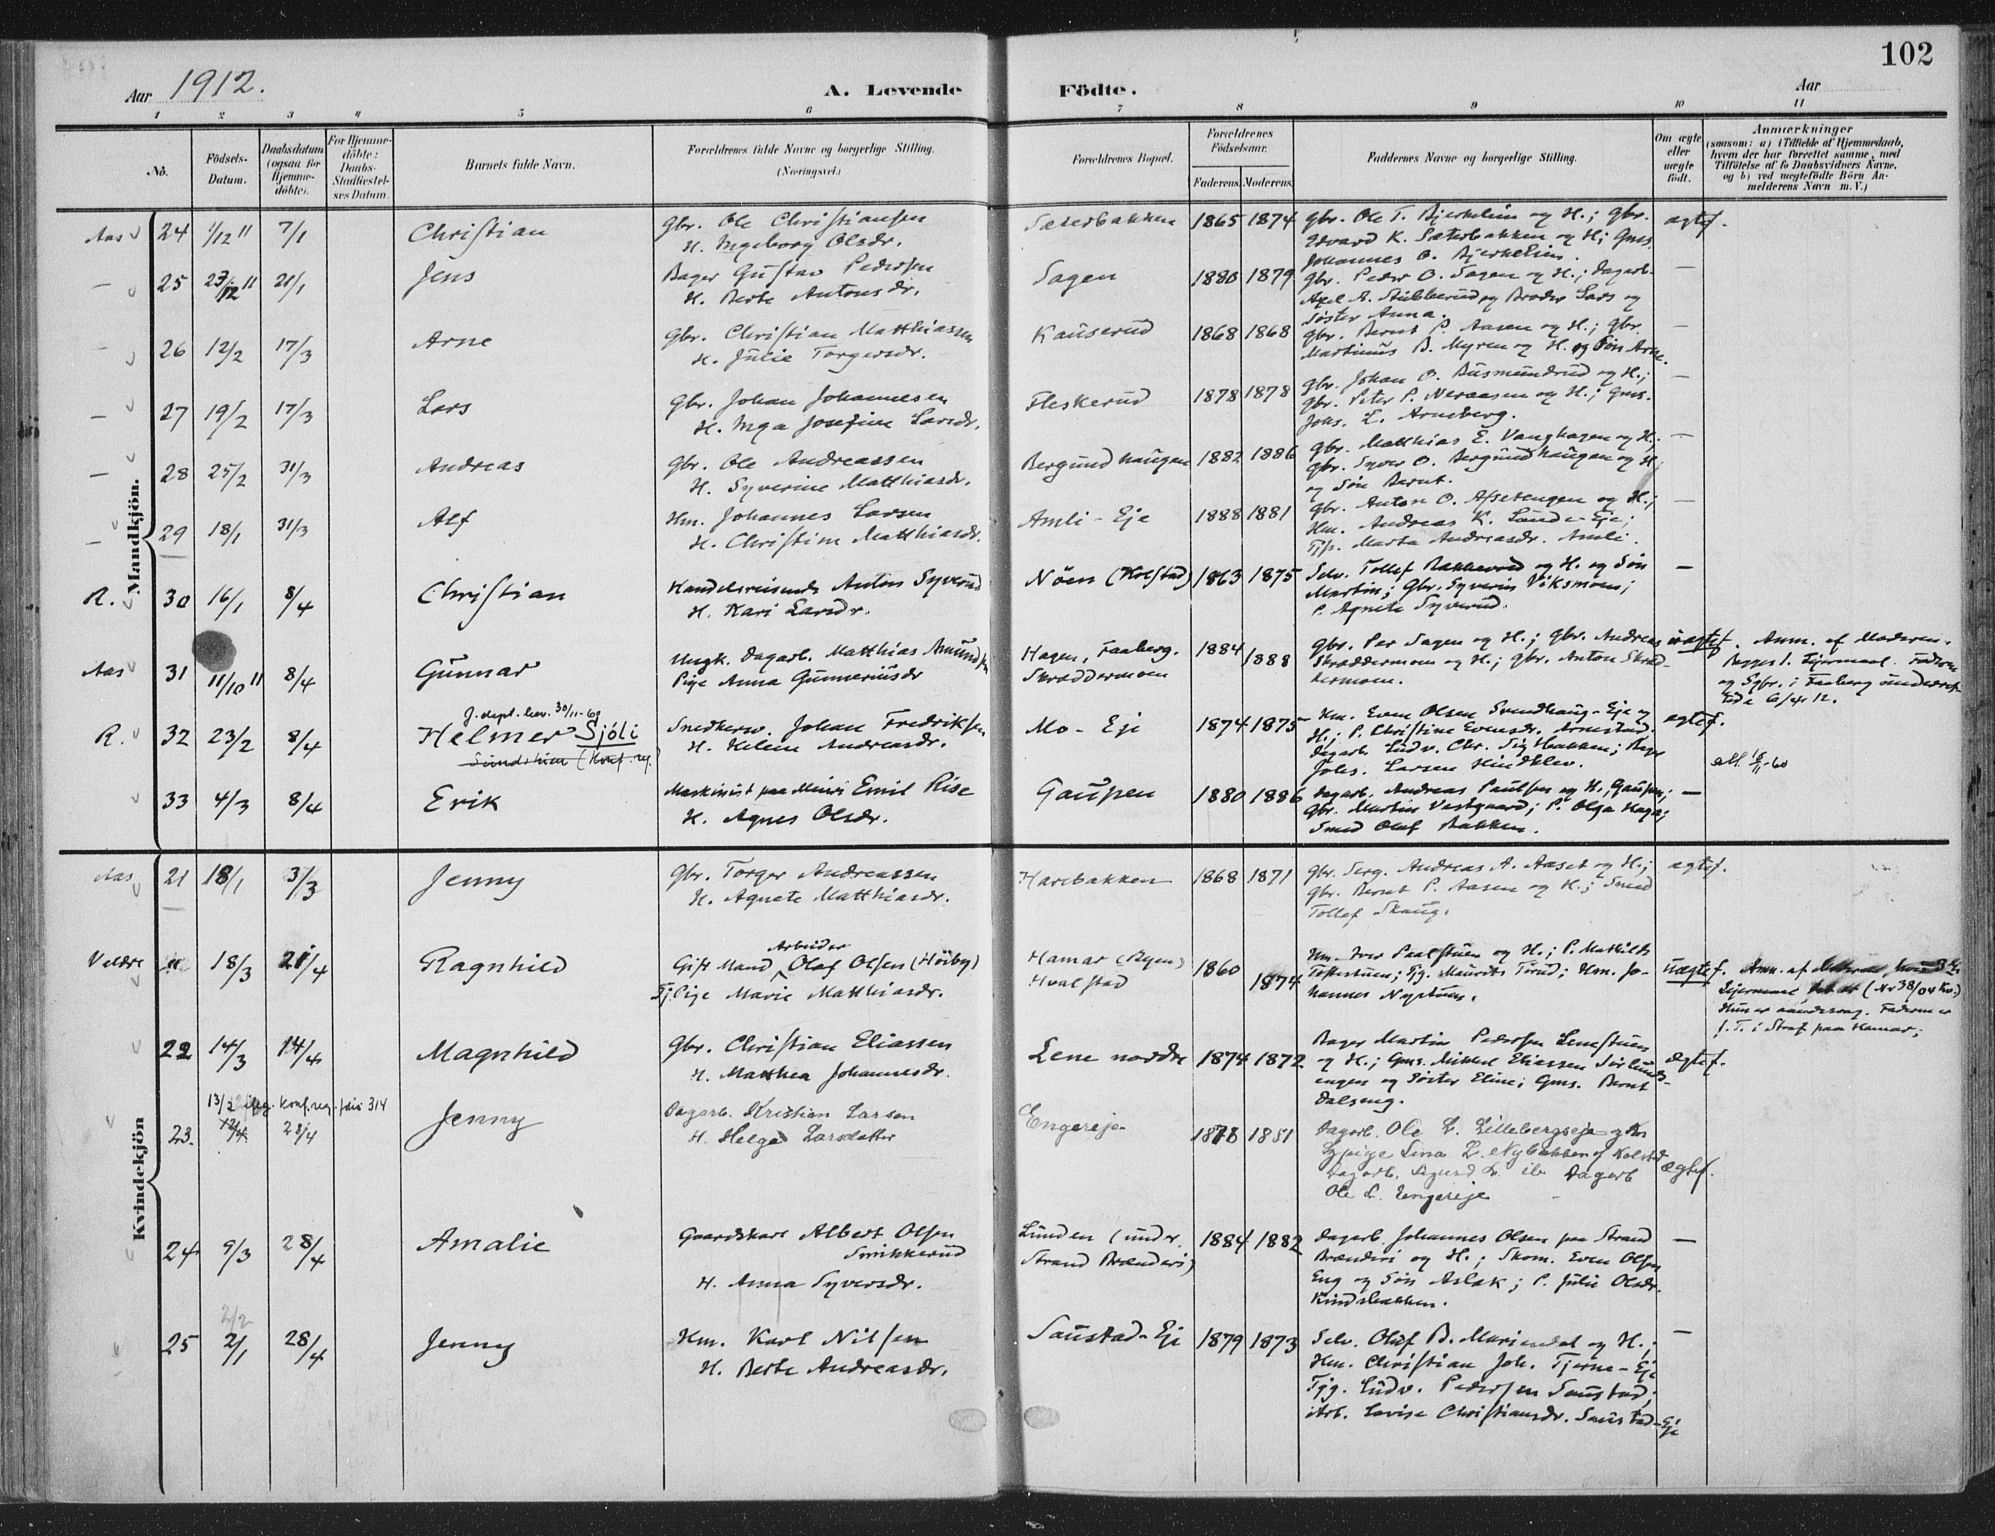 102
Aar 1912.
A. Levende Födte.
Aar
1 2 3 4 5 6 7 8 9 10 11
No.
Födsels-Datum.
Daabsdatum (ogsaa for Hjemmedöbte).
For Hjemmedöbte: Daabs-Stadfæstelses Datum.
Barnets fulde Navn.
Forældrenes fulde Navne og borgerlige Stilling. (Næringsvei.)
Forældrenes Bopæl.
Forældrenes Födselsaar.
Faderens. Moderens.
Faddernes Navne og borgerlige Stilling.
Om ægte eller uægte födt.
Anmærkninger
(saasom: a) i Tilfælde af Hjemmedaab, hvem der har forrettet samme, med Tilföielse af to Daabsvidners Navne, og b) ved uægtefödte Börn Anmelderens Navn m. V.)
Mandkjön.
Aas 24 1/12 11 7/1 Christian
Gbr. Ole Christiansen
H. Ingeborg Olsdr.
Sæterbakken 1865 1874
Gbr. Ole T. Bjerkelien og H.; Gbr.
Edvard K. Sæterbakken og H; Gms.
Johannes O. Bjerkelien.
ægtef.
— 25 23/12 11 21/1 Jens
Bager Gustav Pedersen
H. Berte Antonsdr.
Sagen 1880 1879
Gbr. Peder O. Sagen og H.; Dagarb.
Axel A. Stubberud og Broder Lars og
Söster Anna.
—
— 26 12/2 17/3 Arne
Gbr. Christian Matthiassen
H. Julie Torgersdr.
Kauserud 1868 1868
Gbr. Bernt P. Aasen og H.; Gbr.
Martinus B. Myren og H. og Sön Arne.
—
— 27 19/2 17/3 Lars
Gbr. Johan Johannesen
H. Inga Josefine Larsdr.
Fleskerud 1878 1878
Gbr. Johan O. Busmundrud og H.;
Gbr. Peter P. Neraasen og H.; Gms.
Johs. L. Arneberg.
—
— 28 25/2 31/3 Andreas
Gbr. Ole Andreassen
H. Syverine Matthiasdr.
Bergundhaugen 1882 1886
Gbr. Matthias E. Vanghagen og H.
Gbr. Syver O. Bergundhaugen og H.
og Sön Bernt.
—
— 29 18/1 31/3 Alf
Hm. Johannes Larsen
H. Christine Matthiasdr.
Amli - Eje 1888 1881
Gbr. Anton O. Afsetengen og H.;
Hm. Andreas K. Sande-Eje;
Tjp. Marta Andreasdr. Amli.
—
R. 30 16/1 8/4 Christian
Handelsreisende Anton Syverud
H. Kari Larsdr.
Nöen (Kolstad) 1863 1875
Selv. Tollef Bakkerud og H. og Sön
Martin; Gbr. Syverin Viksmoen;
P. Agnete Syverud.
—
Aas 31 11/10 11 8/4 Gunnar
Ungk. Dagarb. Matthias Amundsen
Pige Anna Gunneriusdr
Hagen, Faaberg.
Skræddermoen
1884 1888
Gbr. Per Sagen og H.; Gbr. Andreas
Skræddermoen og H.; Gbr. Anton Skræd-
dermoen.
uægtef. Anm. af Moderen.
Begges 1. Leiermaal. Faderen
og Sgbr. i Faaberg underret-
tede 6/4 12.
J. dept. bev. 30/11-60
R. 32 23/2 8/4 Helmer Sjöli
Sundheim (Konf. reg.)
Snedkersv. Johan Fredriksen
H. Helene Andreasdr.
Mo - Eje 1874 1875
Hm. Even Olsen Svendhaug-Eje og
H.; P. Christine Evensdr. Arnestad.
Dagarb. Ludv. Chr. Sighakken; Bager
Johs. Larsen Hindklev.
ægtef.
33 4/3 8/4 Erik
Maskinist paa Meieri Emil Rise
H. Agnes Olsdr.
Gaupen 1880 1886
Dagarb. Andreas Paulsen og H. Gaupen;
Gbr. Martin Vestgaard; P. Olga Haga;
Smed Oluf Bakken.
—
Kvindekjön
Aas 21 18/1 3/3 Jenny
Gbr. Torger Andreassen
H. Agnete Matthiasdr.
Harebakken 1868 1871
Gbr. Serg. Andreas A. Aaset og H.;
Gbr. Bernt P. Aasen og H.; Smed
Tollef Skaug.
ægtef.
Veldre 18/3 21/4 Ragnhild
Arbeider
Gift Mand Olaf Olsen (Höiby)
Tj. Pige Marie Matthiasdr.
Hamar (Byen)
Hvalstad
1860 1874
Hm. Iver Paalstuen og H.; P. Mathilde
Toftestuen; Tjg. Maurits Torud; Hm. Jo-
hannes Nystuen.
Uægtef. Anm. af Moderen, hvis 3die
Leiermaal (Nr 38/04 Kv.)
Faderen er
f. T. i Straf paa Hamar.
22 14/3 14/4 Magnhild
Gbr. Christian Eliassen
H. Matthea Johannesdr.
Lene nordre 1874 1872
Bager Martin Pedersen Lenestuen
og H.; Gms. Mikkel Eliassen Sörlunds-
engen og Söster Eline; Gms. Bernt
Dalseng.
ægtef.
13/2 konf. reg. 314
23. 12/4 28/4 Jenny
Dagarb. Kristian Larsen
H. Helga Larsdatter
Engereje 1878 1881
Dagarb. Ole L. Lillebergseje og
Pige Lina L. Nybakken af Kolstad
Dagarb. Sigurd L. ib. Dagarb
Ole L. Engereje
Ægtef.
24 9/3 28/4 Amalie
Gaardskarl Albert Olsen
Smikkerud
H. Anna Syversdr.
Lunden (under
Strand Brænderi)
1884 1882
Dagarb. Johannes Olsen paa Strand
Brænderi og H.; Skom. Even Olsen
Eng og Sön Aslak; P. Julie Olsdr.
Kindsbakken.
—
2/2
25 2/1 28/4 Jenny
Hm. Karl Nilsen
H. Berte Andreasdr.
Saustad-Eje 1879 1873
Selv. Oluf B. Mariendal og H.;
Hm. Christian Joh. Tjerne-Eje
Tjg. Ludv. Pedersen Saustad;
Arb. Lovise Christiansdr. Saustad-Eje
—